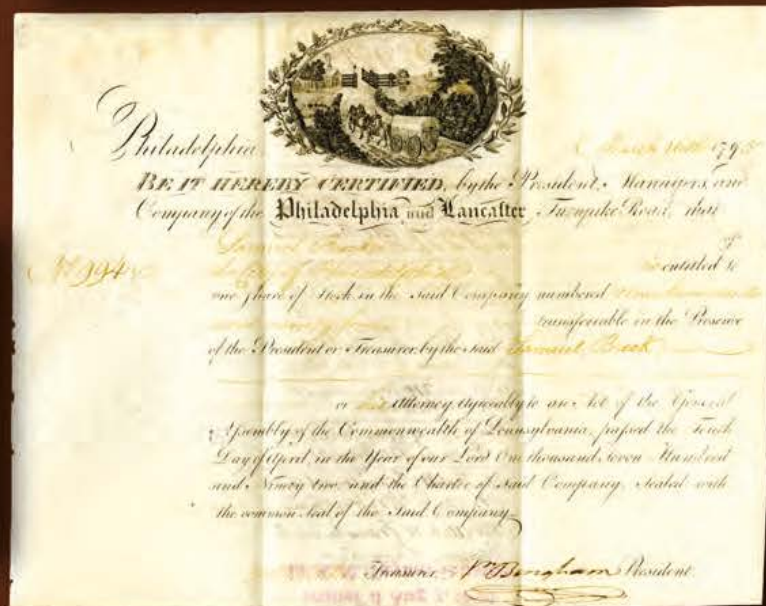 Philadelphia 1795
BE IT HEREBY CERTIFIED, by the President, Managers, and
Company of the Philadelphia and Lancaster Turnpike Road, that
Samuel Breck of
No 994 entitled to
one Share of Stock in the said Company numbered
transferable in the Presence
of the President or Treasurer, by the said Samuel Breck
or his Attorney Agreeably to an Act of the General
Assembly of the Commonwealth of Pennsylvania, passed the Tenth
Day of April, in the Year of our Lord One thousand Seven Hundred
and Ninety two, and the Charter of said Company, Sealed with
the common Seal of the Said Company.
Treasurer. Wm Bingham President.